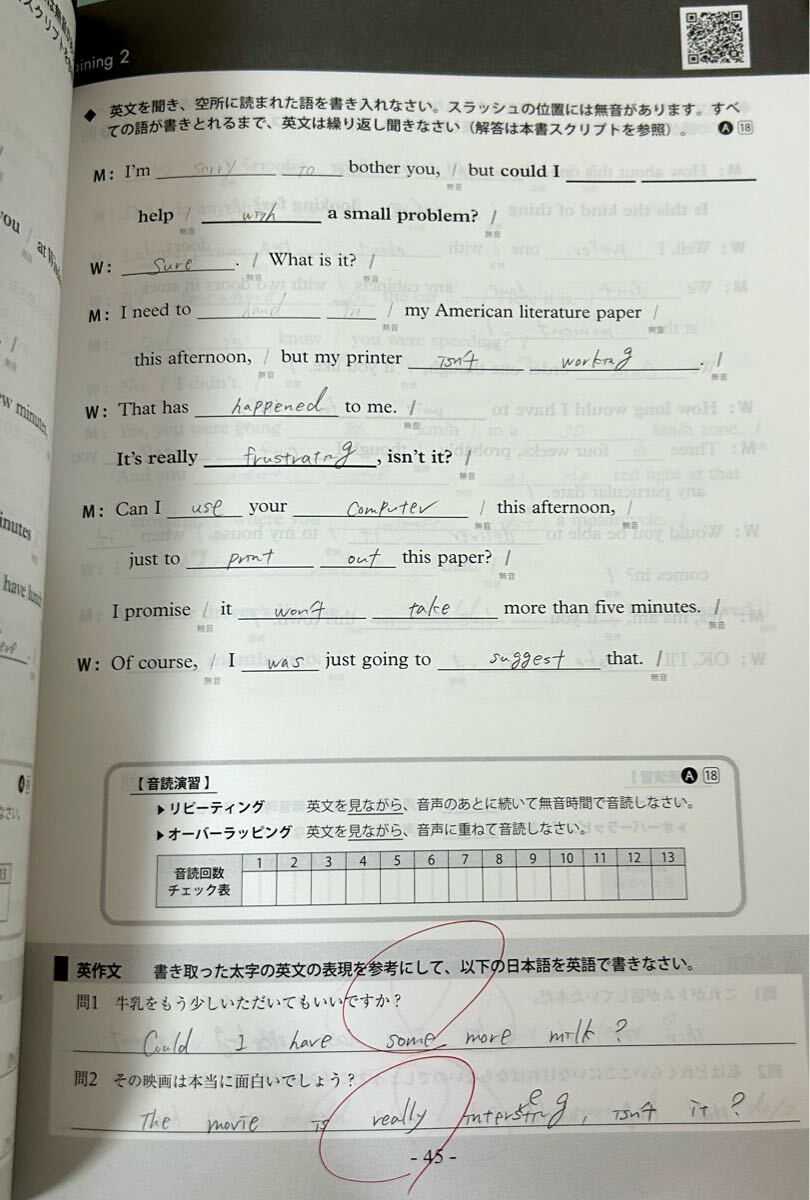 aining 2
◆ 英文を聞き、空所に読まれた語を書き入れなさい。スラッシュの位置には無音があります。すべ
ての語が書きとれるまで、英文は繰り返し聞きなさい（解答は本書スクリプトを参照）。 A 18
M: I'm sorry to bother you, / but could I
無音
help / with a small problem? /
無音 無音
W: sure . / What is it? /
無音 無音
M: I need to hand in / my American literature paper /
無音 無音
this afternoon, / but my printer isn't working . /
無音 無音
W: That has happened to me. /
無音
It's really frustratng , isn't it? /
無音
M: Can I use your computer / this afternoon, /
無音 無音
just to print out this paper? /
無音
I promise / it won't take more than five minutes. /
無音 無音
W: Of course, / I was just going to suggest that. /
無音 無音
【音読演習】 A 18
▶ リピーティング 英文を見ながら、音声のあとに続いて無音時間で音読しなさい。
▶ オーバーラッピング 英文を見ながら、音声に重ねて音読しなさい。
音読回数 1 2 3 4 5 6 7 8 9 10 11 12 13
チェック表
英作文 書き取った太字の英文の表現を参考にして、以下の日本語を英語で書きなさい。
問1 牛乳をもう少しいただいてもいいですか？
Could I have some more milk ?
問2 その映画は本当に面白いでしょう？
The movie is really interesting, isn't it ?
- 45 -